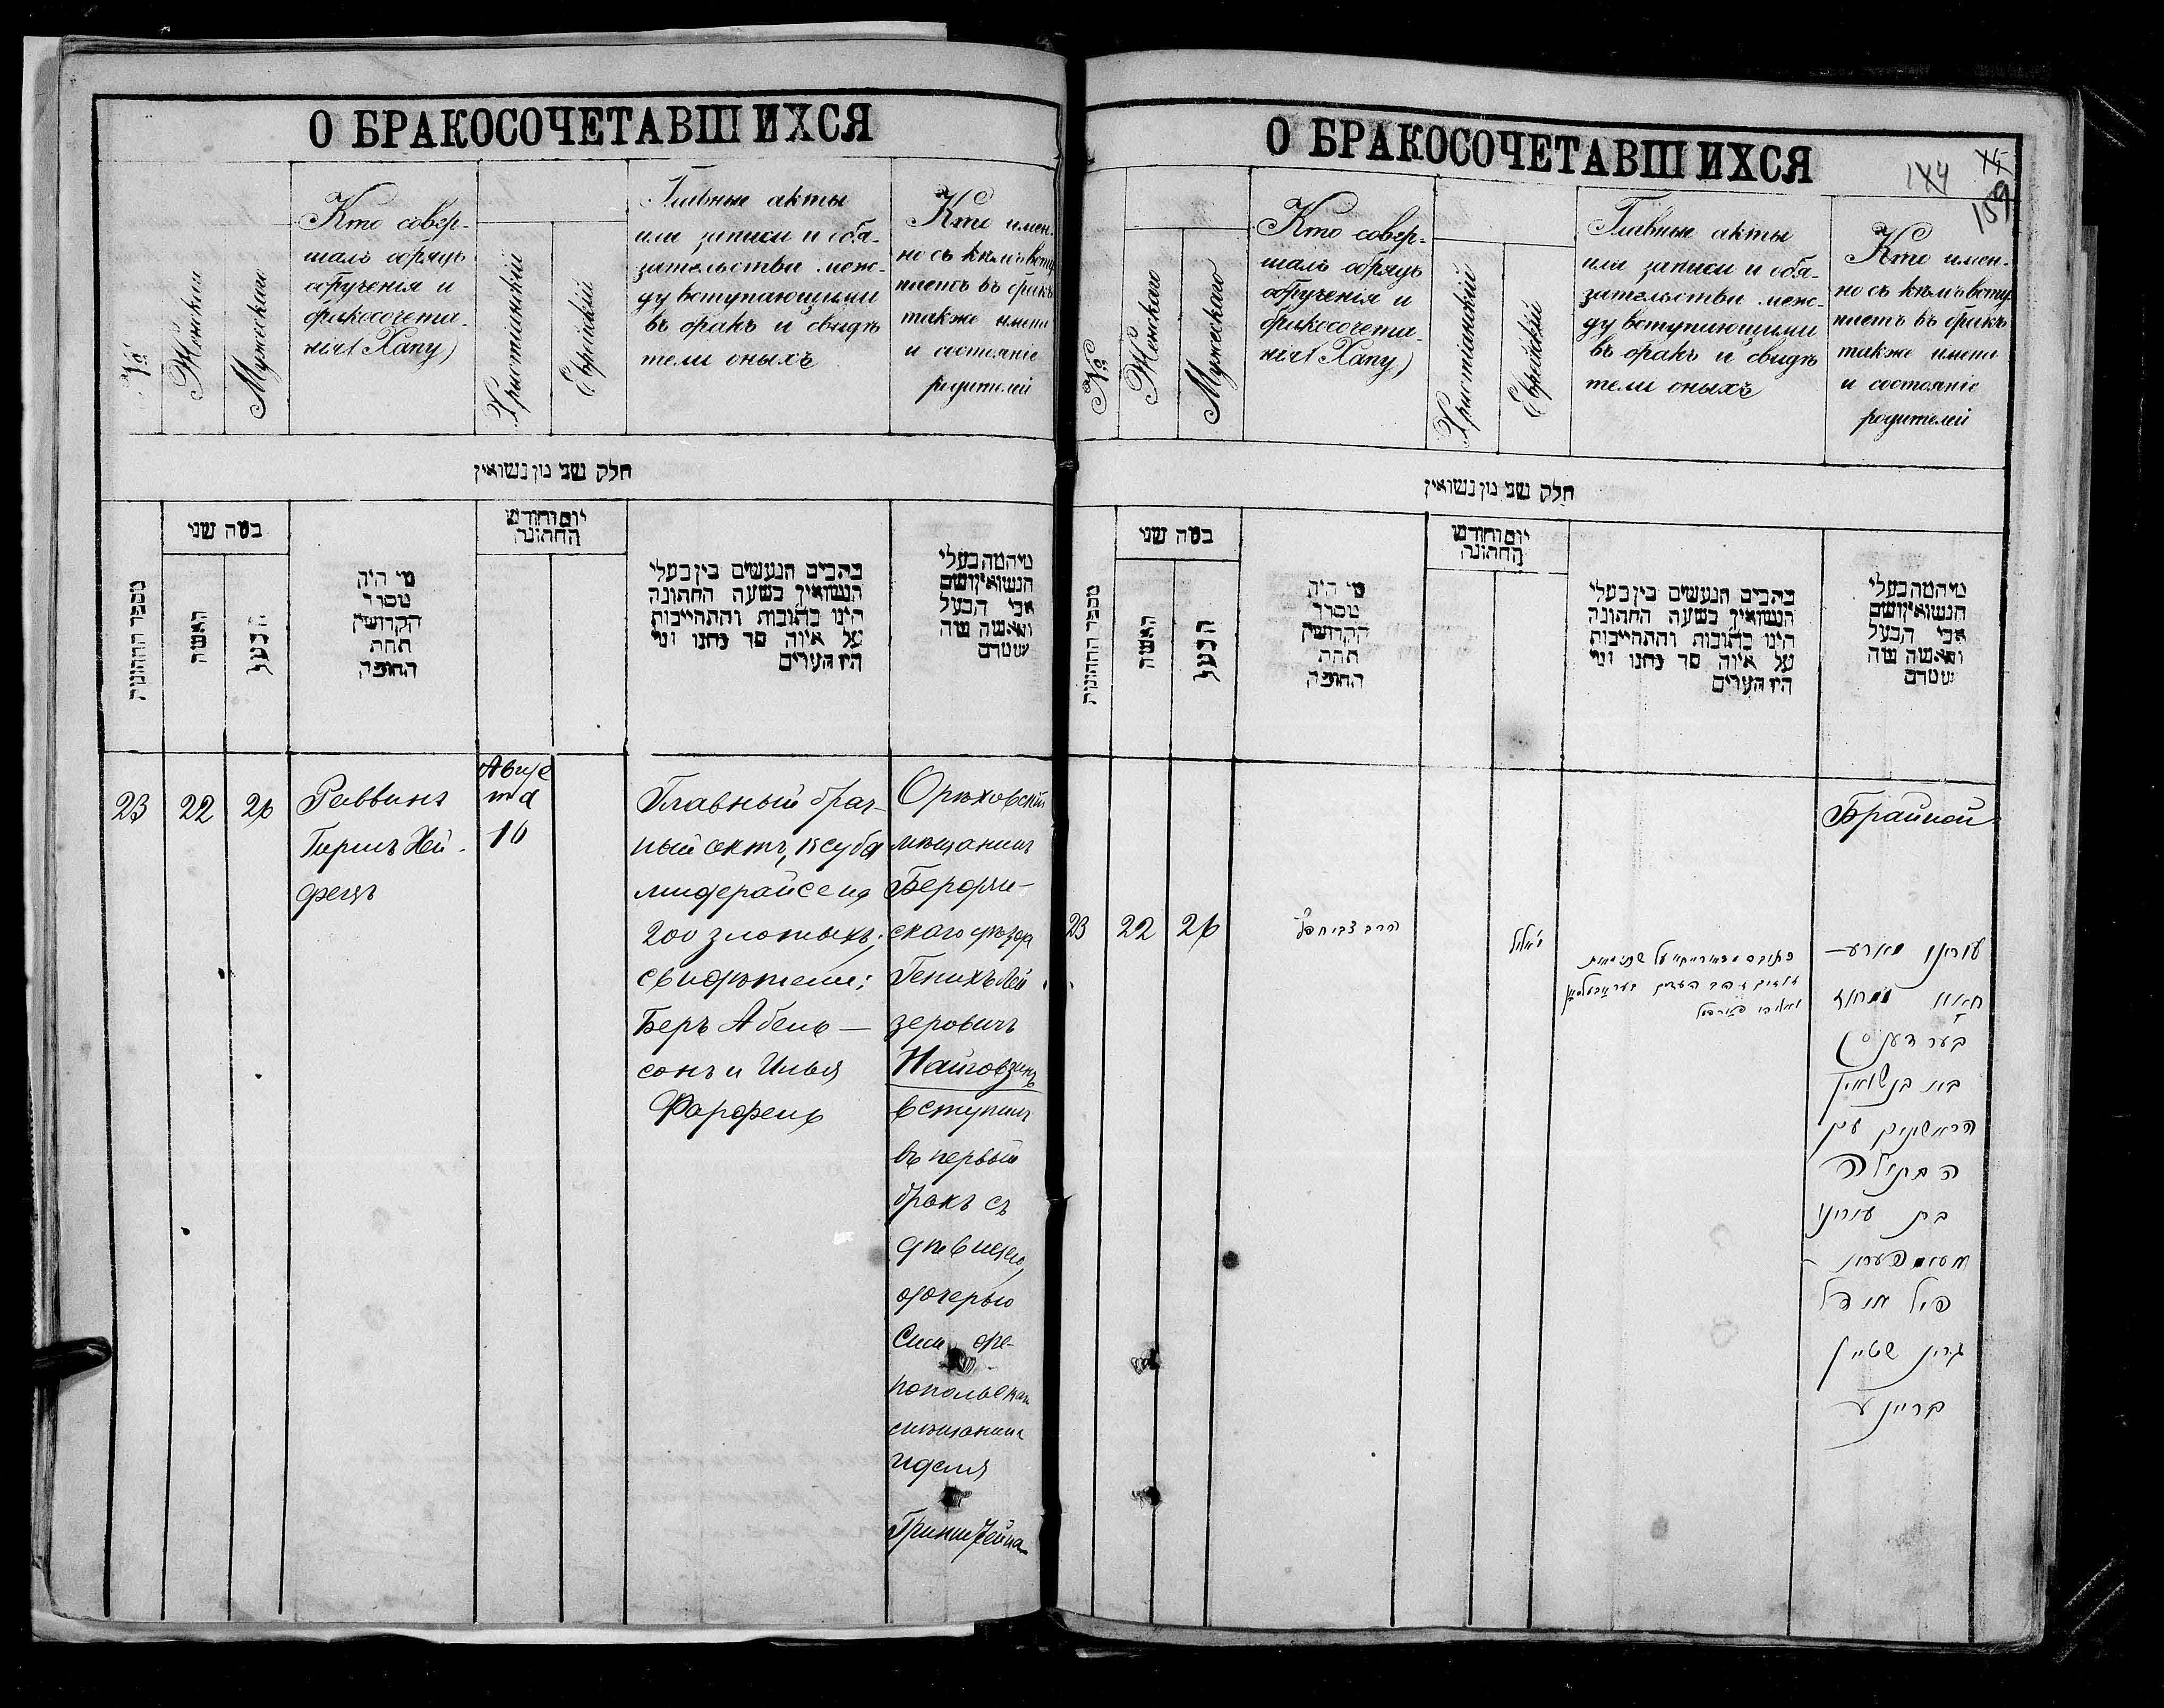 О БРАКОСОЧЕТАВШИХСЯ
№
Женскаго
Мужескаго
Кто совер-
шалъ обрядъ
обрученія и
бракосочета-
нія (Хапу)
Христіанскій
Еврейскій
Главные акты
или записи и обя-
зательства меж-
ду вступающими
въ бракъ и свидѣ
тели оныхъ
Кто имен-
но съ кѣмъ всту
паетъ въ бракъ
также имена
и состояніе
родителей
חלק שני מן נשואין
מספר החתונות
כמה שני
האשה
הבעל
מי היה
מסדר
הקדושין
תחת
החופה
יום וחודש
החתונה
מכתבים הנעשים בין בעלי
הנשואין בשעה החתונה
היינו כתובות והתחייבות
על איזה סך נתנו ומי
היו העדים
מיהמה בעלי
הנשואין ושם
אבי הבעל
והאשה
23
22
26
Раввинъ
Гиршъ Хей-
фецъ
Авгус
та
16
Главный брач-
ный актъ, ксуба
мидерайсе на
200 злотыхъ;
свидѣтели:
Беръ Абель-
сонъ и Илья
Фарфель
Орѣховскій
мѣщанинъ
Бердян-
скаго уѣзда
Генихъ Лей-
зеровичъ
вступилъ
въ первый
бракъ съ
дѣвицею,
дочерью
Сим фе-
рополь
мѣщанина
Иделя
Гринштейна
О БРАКОСОЧЕТАВШИХСЯ
144
159
№
Женскаго
Мужескаго
Кто совер-
шалъ обрядъ
обрученія и
бракосочета-
нія (Хапу)
Христіанскій
Еврейскій
Главные акты
или записи и обя-
зательства меж-
ду вступающими
въ бракъ и свидѣ
тели оныхъ
Кто имен-
но съ кѣмъ всту
паетъ въ бракъ
также имена
и состояніе
родителей
חלק שני מן נשואין
מספר החתונות
כמה שני
האשה
הבעל
מי היה
מסדר
הקדושין
תחת
החופה
יום וחודש
החתונה
מכתבים הנעשים בין בעלי
הנשואין בשעה החתונה
היינו כתובות והתחייבות
על איזה סך נתנו ומי
היו העדים
מיהמה בעלי
הנשואין ושם
אבי הבעל
והאשה
Брайной
23
22
26
הרב צבי
עירוני
בנשואין
הראשונים עם
הבתולה
בת עירוני
גרינשטיין
בריינע